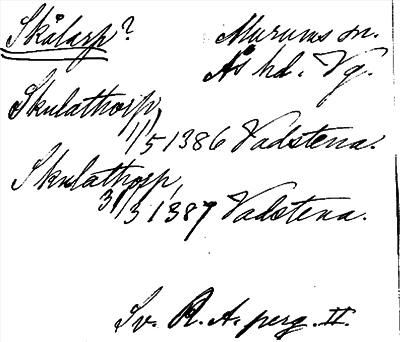 Skålarp? Murums sn.
Ås hd. Vg.
Skulathorp,
1/5 1386 Vadstena.
Skulathorp,
31/3 1387 Vadstena.
Sv. R. A. perg. II.